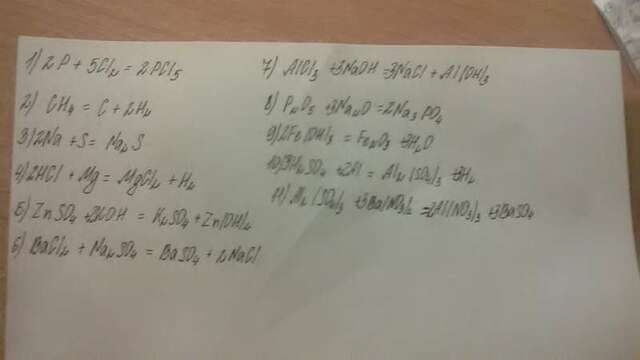 1) 2P + 5Cl₂ = 2PCl₅
2) CH₄ = C + 2H₂
3) 2Na + S = Na₂S
4) 2HCl + Mg = MgCl₂ + H₂
5) ZnSO₄ + 2KOH = K₂SO₄ + Zn(OH)₂
6) BaCl₂ + Na₂SO₄ = BaSO₄ + 2NaCl
7) AlCl₃ + 3NaOH = 3NaCl + Al(OH)₃
8) P₂O₅ + 3Na₂O = 2Na₃PO₄
9) 2Fe(OH)₃ = Fe₂O₃ + 3H₂O
10) 3H₂SO₄ + 2Al = Al₂(SO₄)₃ + 3H₂
11) Al₂(SO₄)₃ + 3Ba(NO₃)₂ = 2Al(NO₃)₃ + 3BaSO₄